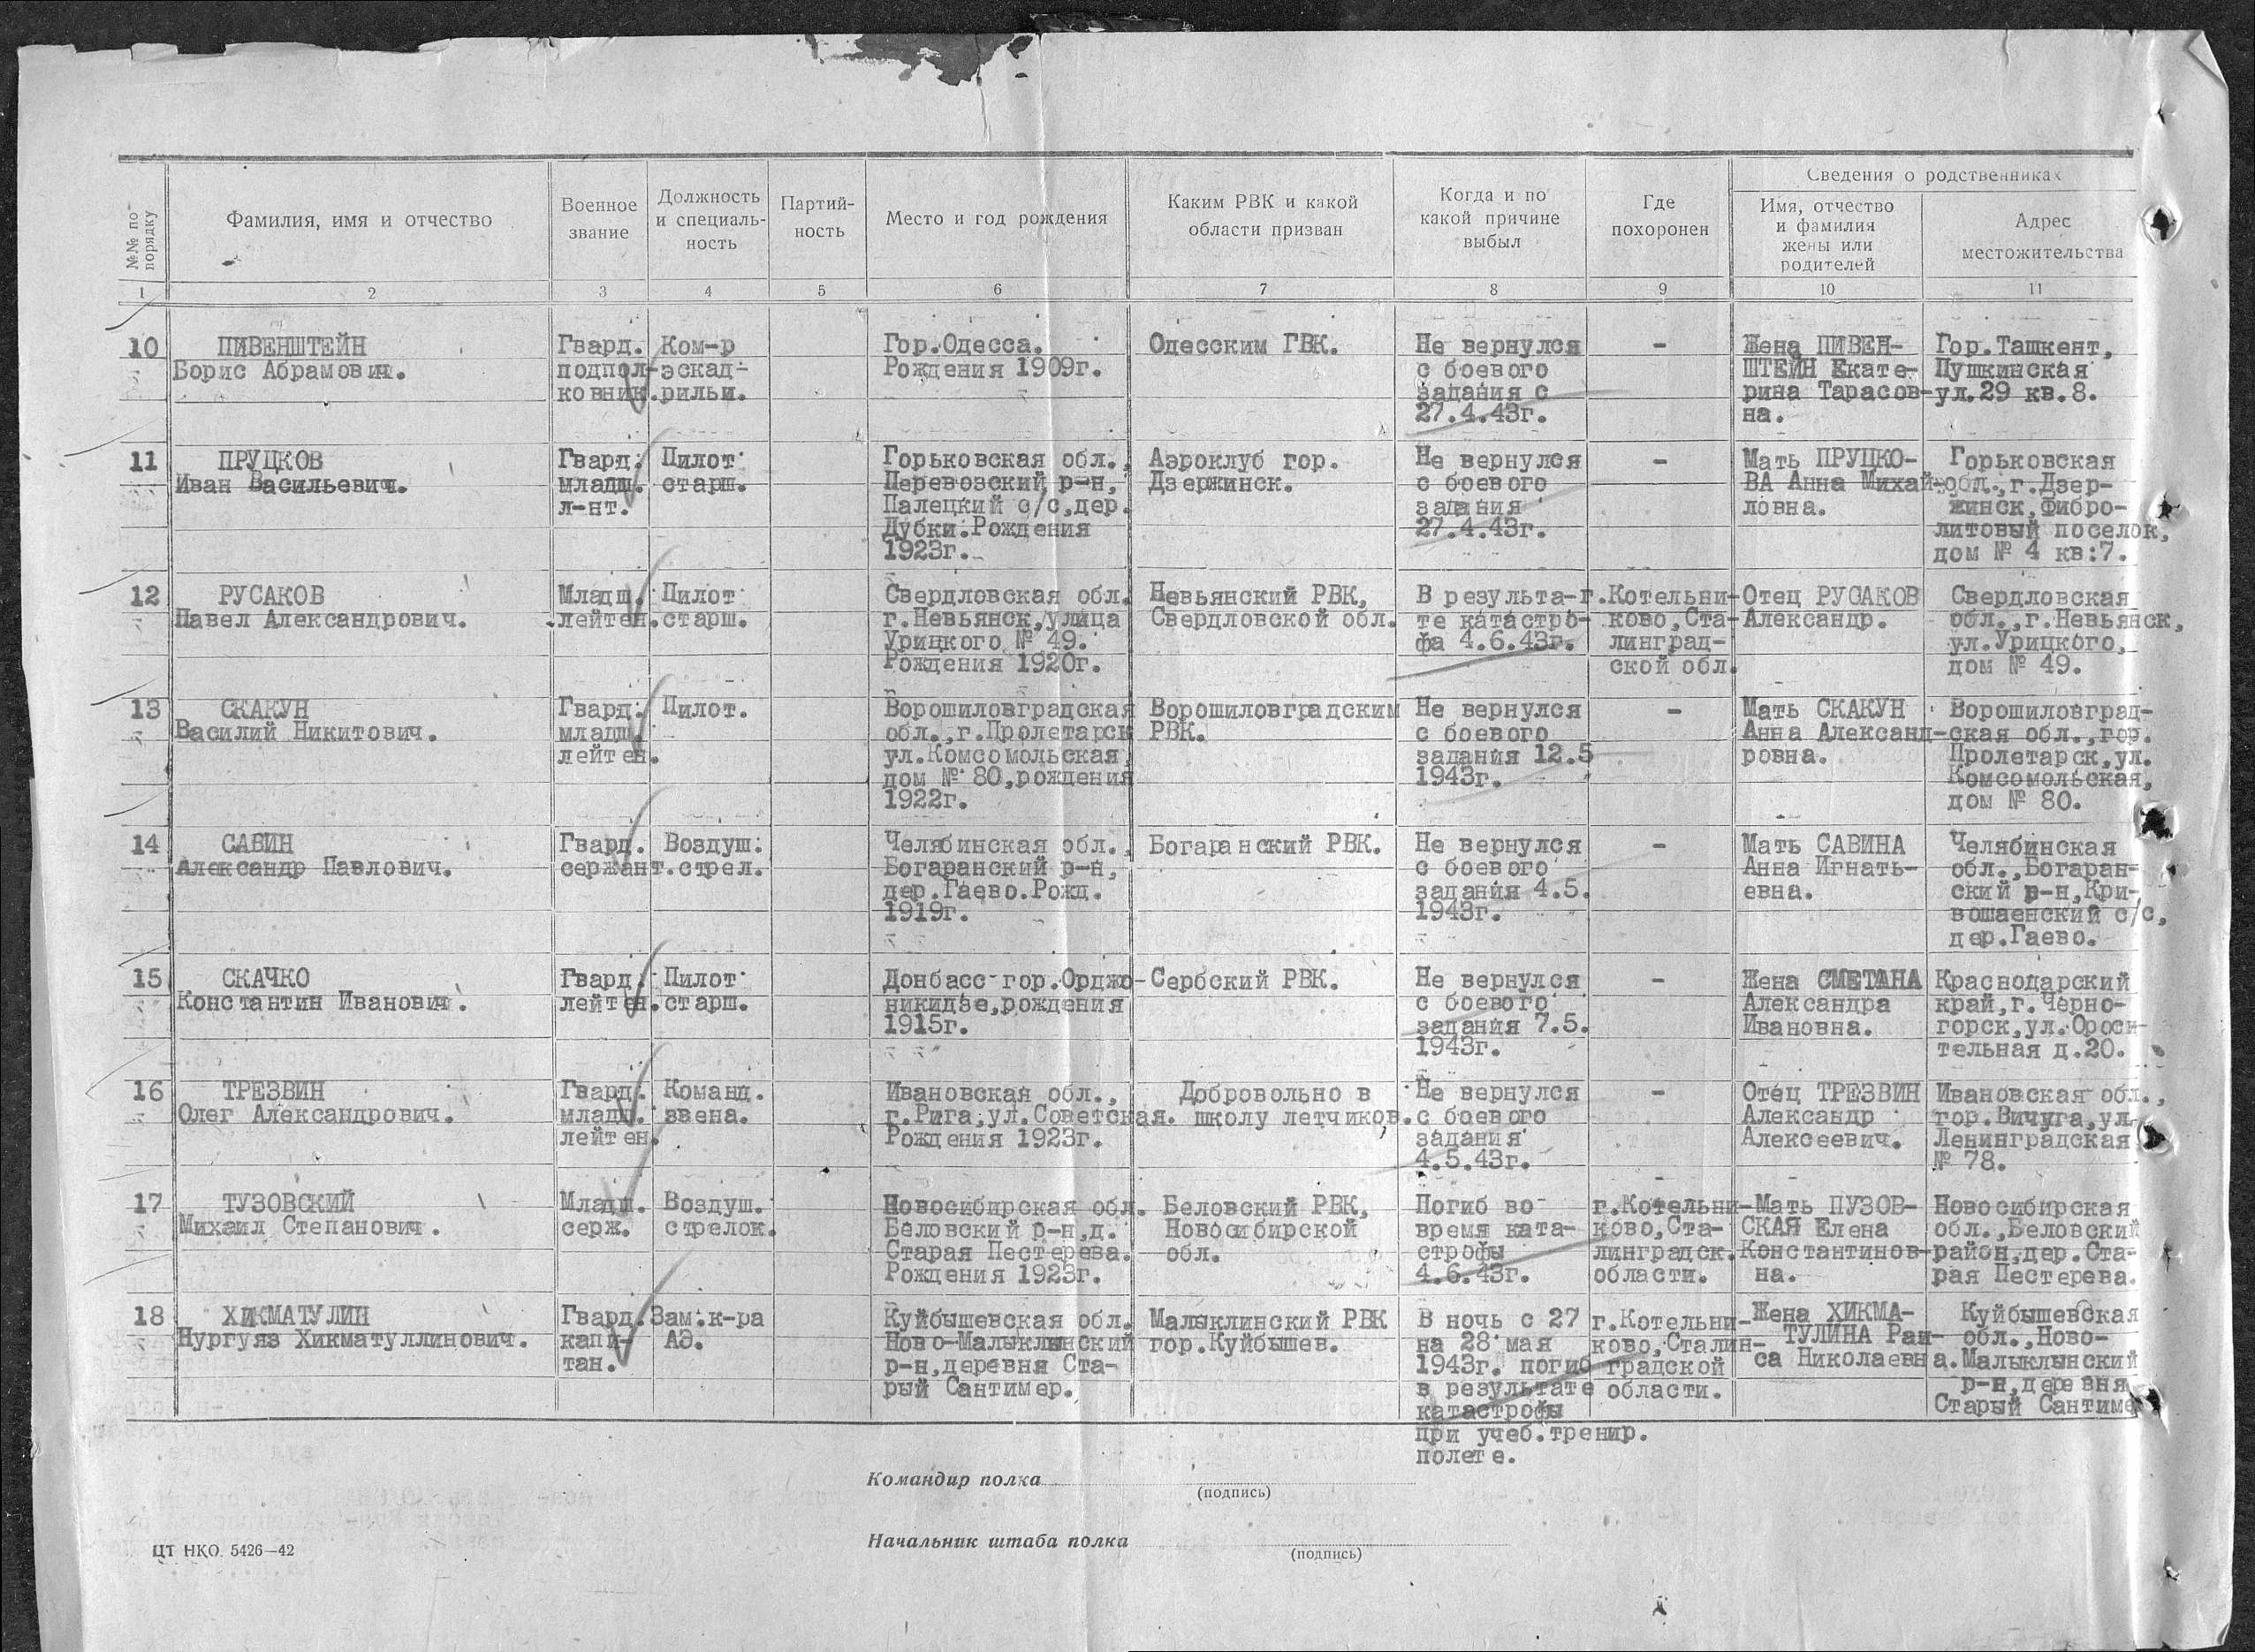 Сведения о родственниках
№№ по порядку
Фамилия, имя и отчество
Военное звание
Должность и специаль-ность
Партий-ность
Место и год рождения
Каким РВК и какой области призван
Когда и по какой причине выбыл
Где похоронен
Имя, отчество и фамилия жены или родителей
Адрес местожительства
1 2 3 4 5 6 7 8 9 10 11
10 ПИВЕНШТЕЙН Гвард. Ком-р Гор.Одесса. Одесским ГВК. Не вернулся - Жена ПИВЕН- Гор.Ташкент,
Борис Абрамович. подпол- эскад- Рождения 1909г. с боевого ШТЕЙН Екате- Пушкинская
ковник. рильи. задания с рина Тарасов- ул.29 кв.8.
27.4.43г. на.
11 ПРУЦКОВ Гвард. Пилот Горьковская обл., Аэроклуб гор. Не вернулся - Мать ПРУЦКО- Горьковская
Иван Васильевич. младш. старш. Перевозский р-н, Дзержинск. с боевого ВА Анна Михай- обл.,г.Дзер-
л-нт. Палецкий с/с,дер. задания ловна. жинск,Фибро-
Дубки.Рождения 27.4.43г. литовый поселок,
1923г. дом № 4 кв:7.
12 РУСАКОВ Младш. Пилот Свердловская обл. Невьянский РВК, В результа- г.Котельни- Отец РУСАКОВ Свердловская
Павел Александрович. лейтен. старш. г.Невьянск,улица Свердловской обл. те катастро- ково,Ста- Александр. обл.,г.Невьянск,
Урицкого № 49. фа 4.6.43г. линград- ул.Урицкого,
Рождения 1920г. ской обл. дом № 49.
13 СКАКУН Гвард. Пилот. Ворошиловградская Ворошиловградским Не вернулся - Мать СКАКУН Ворошиловград-
Василий Никитович. младш. обл.,г.Пролетарск РВК. с боевого Анна Александ- ская обл.,гор.
лейтен. ул.Комсомольская, задания 12.5 ровна. Пролетарск,ул.
дом № 80,рождения 1943г. Комсомольская,
1922г. дом № 80.
14 САВИН Гвард. Воздуш. Челябинская обл., Богаранский РВК. Не вернулся - Мать САВИНА Челябинская
Александр Павлович. сержант. стрел. Богаранский р-н, с боевого Анна Игнать- обл.,Богаран-
дер.Гаево.Рожд. задания 4.5. евна. ский р-н,Кри-
1919г. 1943г. вошаенский с/с,
дер.Гаево.
15 СКАЧКО Гвард. Пилот Донбасс гор.Орджо- Сербский РВК. Не вернулся - Жена СМЕТАНА Краснодарский
Константин Иванович. лейтен. старш. никидзе,рождения с боевого Александра край,г.Черно-
1915г. задания 7.5. Ивановна. горск,ул.Ороси-
1943г. тельная д.20.
16 ТРЕЗВИН Гвард. Команд. Ивановская обл., Добровольно в Не вернулся - Отец ТРЕЗВИН Ивановская обл.,
Олег Александрович. младш. звена. г.Рига,ул.Советская. школу летчиков. с боевого Александр гор.Вичуга,ул.
лейтен. Рождения 1923г. задания Алексеевич. Ленинградская
4.5.43г. № 78.
17 ТУЗОВСКИЙ Младш. Воздуш. Новосибирская обл. Беловский РВК, Погиб во г.Котельни- Мать ПУЗОВ- Новосибирская
Михаил Степанович. серж. стрелок. Беловский р-н,д. Новосибирской время ката- ково,Ста- СКАЯ Елена обл.,Беловский
Старая Пестерева. обл. строфы линградск. Константинов- район,дер.Ста-
Рождения 1923г. 4.6.43г. области. на. рая Пестерева.
18 ХИКМАТУЛИН Гвард. Зам.к-ра Куйбышевская обл. Малыклинский РВК В ночь с 27 г.Котельни- Жена ХИКМА- Куйбышевская
Нургуяз Хикматуллинович. капи- АЭ. Ново-Малыклынский гор.Куйбышев. на 28 мая ково,Сталин- ТУЛИНА Раи- обл.,Ново-
тан. р-н,деревня Ста- 1943г. погиб градской са Николаевна. Малыклынский
рый Сантимер. в результате области. р-н,деревня
катастрофы Старый Сантимер
при учеб.тренир.
полете.
Командир полка
(подпись)
Начальник штаба полка
(подпись)
ЦТ НКО. 5426—42